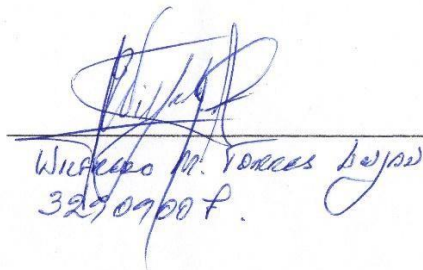 Wilfredo M. Torres Luján
32909007.